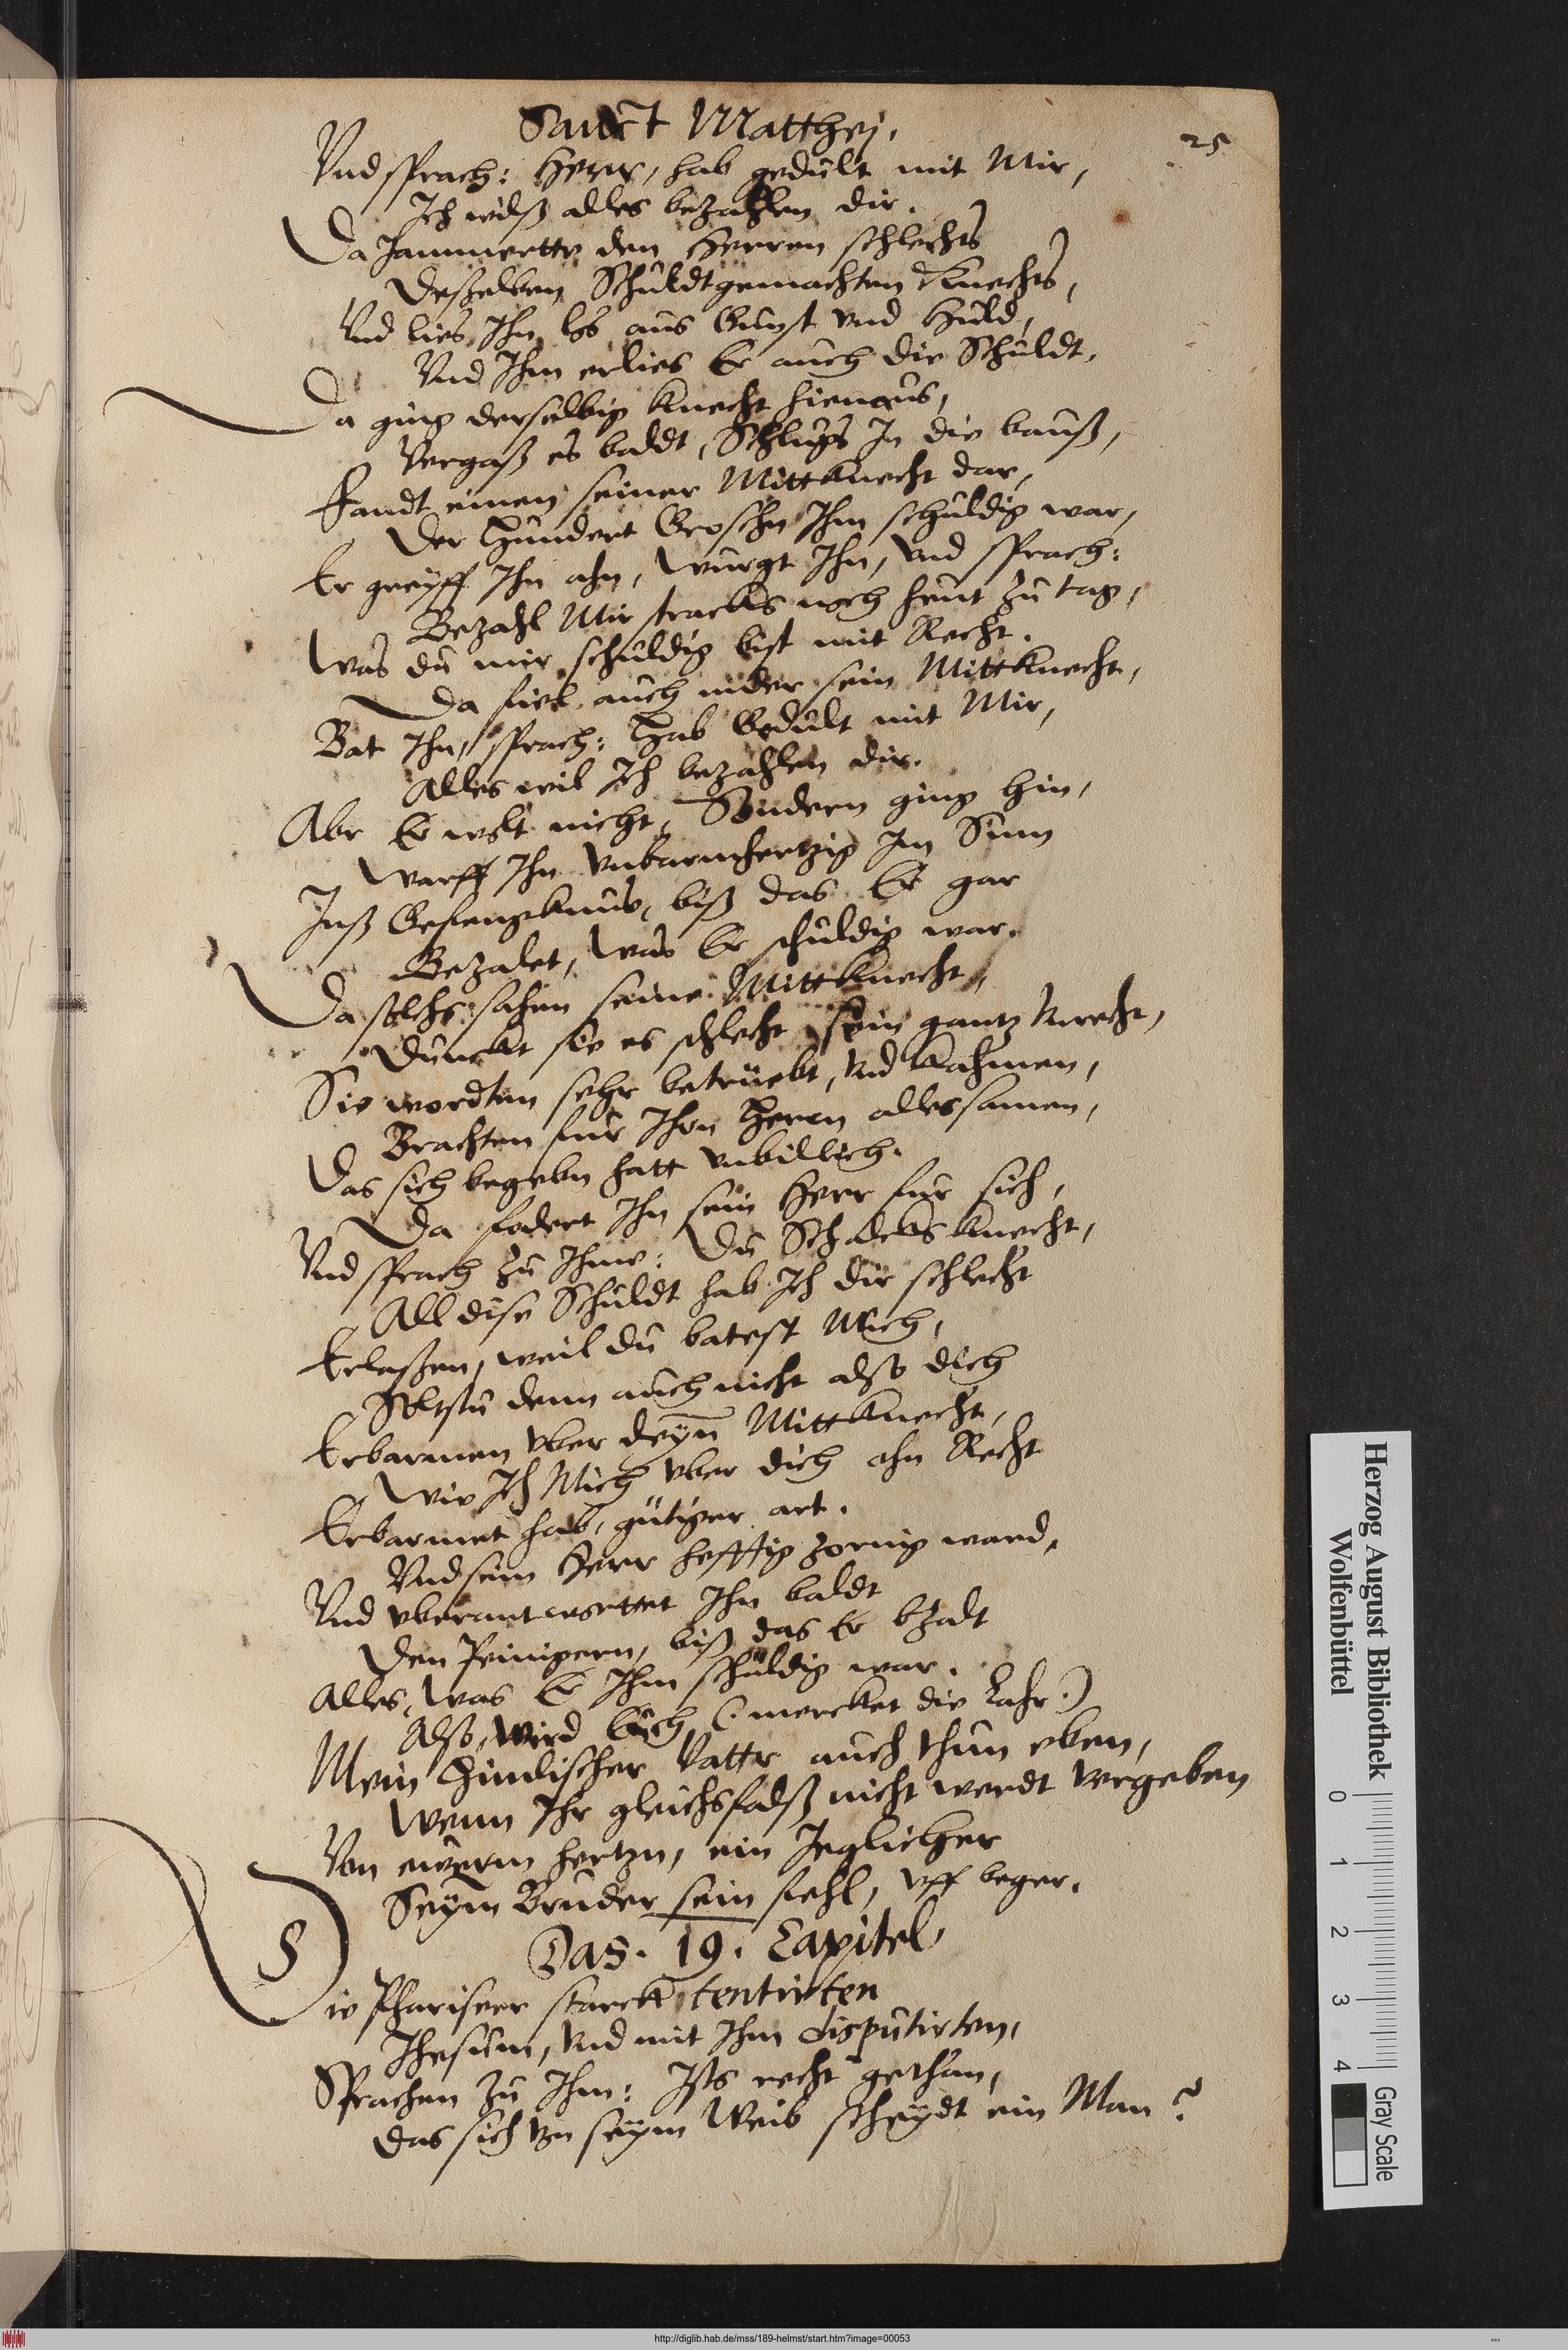 Sanct Matthej.
25
Vnd sprach: Herr, hab gedult mit Mir,
Ich wilß alles bezahlen dir.
Da Jammertte den Herren schlechts
Deßelben Schuldtgemachten Knechts,
Vnd lies Ihn los aus Gunst vnd Huld,
Vnd Ihm erlies Er auch die Schuldt.
Da ging derselbig Knecht hienaus,
Vergaß es baldt, Schlugs In die bauß,
Fandt einen seiner Mittknecht dar,
Der Hundert Groschn Ihm schuldig war,
Er greyff Ihn ahn, Wurgt Ihn, vnd sprach:
Bezahl Mir stracks noch heut zu tag,
Was du mir schuldig bist mit Recht.
Da fiel auch nider sein Mittknecht,
Bat Ihn, sprach: Hab Gedult mit Mir,
Alles wil Ich bezahlen dir.
Abr Er wolt nicht, Sondern ging hin,
Warff Ihn Vnbarmhertzig Im Sinn
Inß Gefengknus, biß das Er gar
Bezalet, Was Er schuldig war.
Da solchs sahen seine Mittknecht,
Dunckt sie es schlecht sein gantz Vnrecht,
Sie wordten sehr betrüebt, vnd kahmen,
Brachten fur Ihrn Herrn allessamen,
Das sich begebn hatt vnbillich.
Da fodert Ihn sein Herr fur sich,
Vnd sprach zu Ihme: Du Schalcksknecht,
All dise Schuldt hab Ich dir schlecht
Erlaßen, weil du batest Mich,
Soltstu denn auch nicht also dich
Erbarmen vber deyn Mittknecht,
Wie Ich Mich vber dich ohn Recht
Erbarmet hab, gütiger art.
Vnd sein Herr hefftig zornig ward,
Vnd vberantwortet Ihn baldt
Den Peinigern, biß das Er bzalt
Alles, Was Er Ihm schuldig war.
Also, Wird Euch (: mercket die Lahr :)
Mein Himlischer Vattr auch thun eben,
Wenn Ihr gleichsfalß nicht werdt vergeben
Von euerm hertzn, ein Jeglicher
Seym Bruder sein fiehl, vff beger.
Das. 19. Capitel,
Die Phariseer starck tentirten
Ihesum, vnd mit Ihm disputirten,
Sprachen zu Ihm: Ists recht gethan,
Das sich von seym Weib scheydt ein Man?
Herzog August Bibliothek
Wolfenbüttel
0 1 2 3 4
Gray Scale
http://diglib.hab.de/mss/189-helmst/start.htm?image=00053